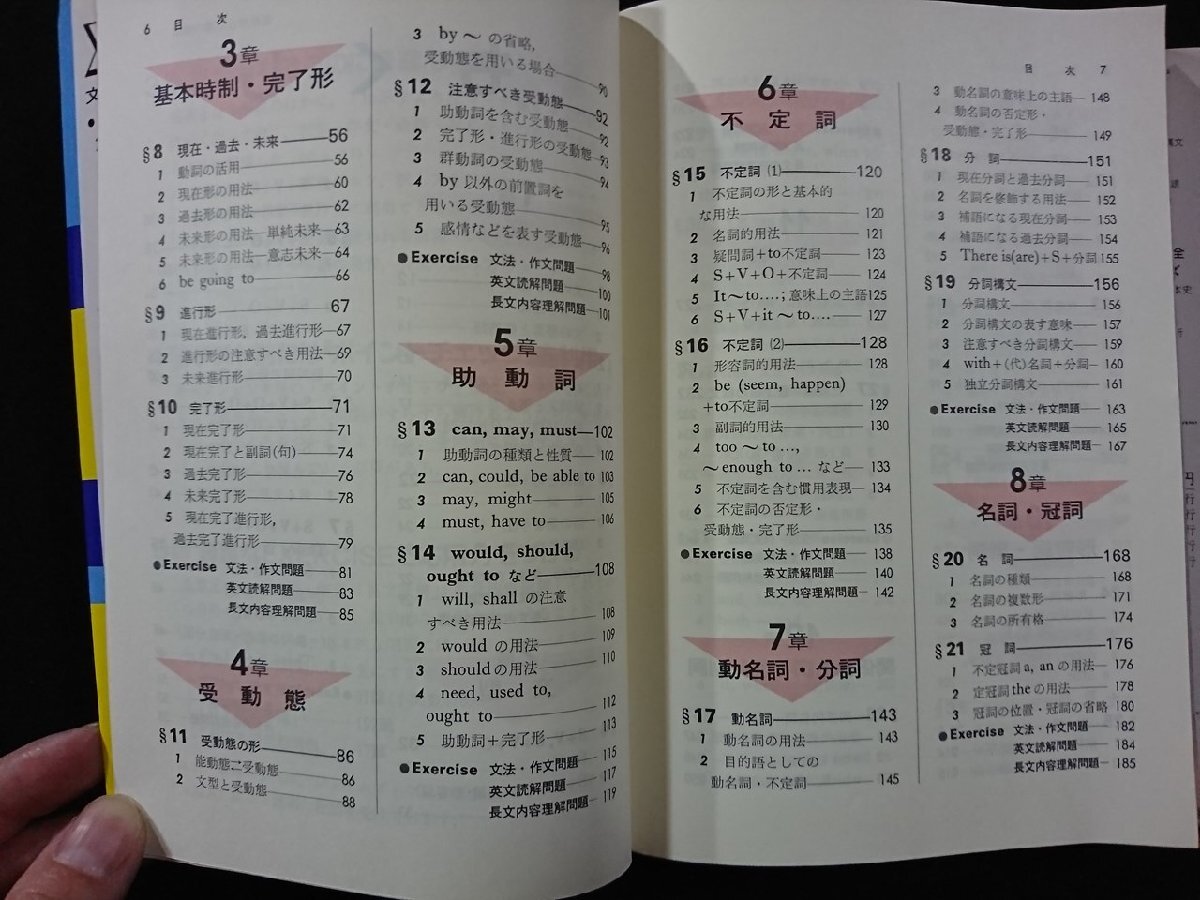 6 目次
3章
基本時制・完了形
§8 現在・過去・未来 56
1 動詞の活用 56
2 現在形の用法 60
3 過去形の用法 62
4 未来形の用法―単純未来 63
5 未来形の用法―意志未来 64
6 be going to 66
§9 進行形 67
1 現在進行形、過去進行形 67
2 進行形の注意すべき用法 69
3 未来進行形 70
§10 完了形 71
1 現在完了形 71
2 現在完了と副詞(句) 74
3 過去完了形 76
4 未来完了形 78
5 現在完了進行形,
過去完了進行形 79
●Exercise 文法・作文問題 81
英文読解問題 83
長文内容理解問題 85
4章
受動態
§11 受動態の形 86
1 能動態⇄受動態 86
2 文型と受動態 88
3 by～の省略,
受動態を用いる場合 90
§12 注意すべき受動態 92
1 助動詞を含む受動態 92
2 完了形・進行形の受動態 93
3 群動詞の受動態 94
4 by以外の前置詞を
用いる受動態 95
5 感情などを表す受動態 96
●Exercise 文法・作文問題 98
英文読解問題 100
長文内容理解問題 101
5章
助動詞
§13 can, may, must 102
1 助動詞の種類と性質 102
2 can, could, be able to 103
3 may, might 105
4 must, have to 106
§14 would, should,
ought to など 108
1 will, shall の注意
すべき用法 108
2 would の用法 109
3 should の用法 110
4 need, used to,
ought to 112
5 助動詞＋完了形 113
●Exercise 文法・作文問題 115
英文読解問題 117
長文内容理解問題 119
目次 7
6章
不定詞
§15 不定詞(1) 120
1 不定詞の形と基本的
な用法 120
2 名詞的用法 121
3 疑問詞＋to不定詞 123
4 S+V+O+不定詞 124
5 It～to....；意味上の主語 125
6 S+V+it～to.... 127
§16 不定詞(2) 128
1 形容詞的用法 128
2 be (seem, happen)
+to不定詞 129
3 副詞的用法 130
4 too～to ...,
～enough to ... など 133
5 不定詞を含む慣用表現 134
6 不定詞の否定形・
受動態・完了形 135
●Exercise 文法・作文問題 138
英文読解問題 140
長文内容理解問題 142
7章
動名詞・分詞
§17 動名詞 143
1 動名詞の用法 143
2 目的語としての
動名詞・不定詞 145
3 動名詞の意味上の主語 148
4 動名詞の否定形・
受動態・完了形 149
§18 分詞 151
1 現在分詞と過去分詞 151
2 名詞を修飾する用法 152
3 補語になる現在分詞 153
4 補語になる過去分詞 154
5 There is(are)+S+分詞 155
§19 分詞構文 156
1 分詞構文 156
2 分詞構文の表す意味 157
3 注意すべき分詞構文 159
4 with+(代)名詞+分詞 160
5 独立分詞構文 161
●Exercise 文法・作文問題 163
英文読解問題 165
長文内容理解問題 167
8章
名詞・冠詞
§20 名詞 168
1 名詞の種類 168
2 名詞の複数形 171
3 名詞の所有格 174
§21 冠詞 176
1 不定冠詞a, anの用法 176
2 定冠詞theの用法 178
3 冠詞の位置・冠詞の省略 180
●Exercise 文法・作文問題 182
英文読解問題 184
長文内容理解問題 185